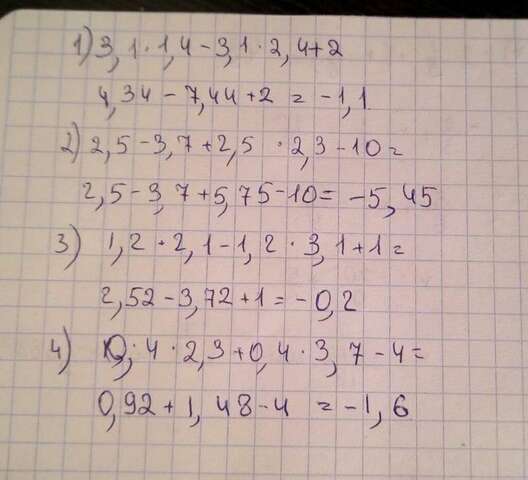 1) 3,1 · 1,4 - 3,1 · 2,4 + 2
4,34 - 7,44 + 2 = -1,1
2) 2,5 - 3,7 + 2,5 · 2,3 - 10 =
2,5 - 3,7 + 5,75 - 10 = -5,45
3) 1,2 · 2,1 - 1,2 · 3,1 + 1 =
2,52 - 3,72 + 1 = -0,2
4) 0,4 · 2,3 + 0,4 · 3,7 - 4 =
0,92 + 1,48 - 4 = -1,6